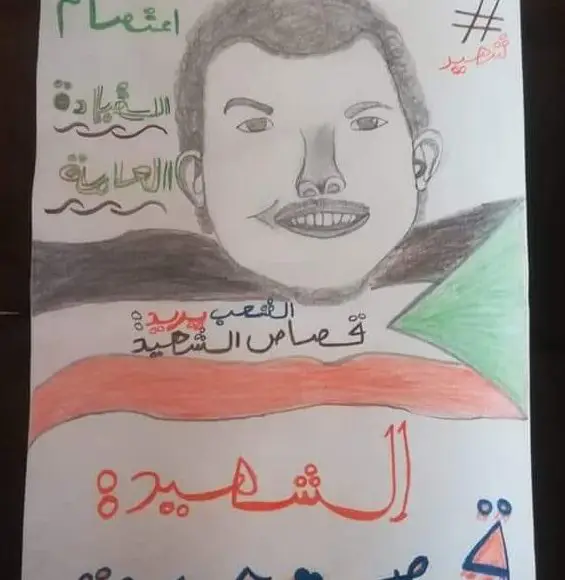 # شهيد
اعتصام
القيادة
العامة
الشعب يريد :
قصاص الشهيد
الشهيد :